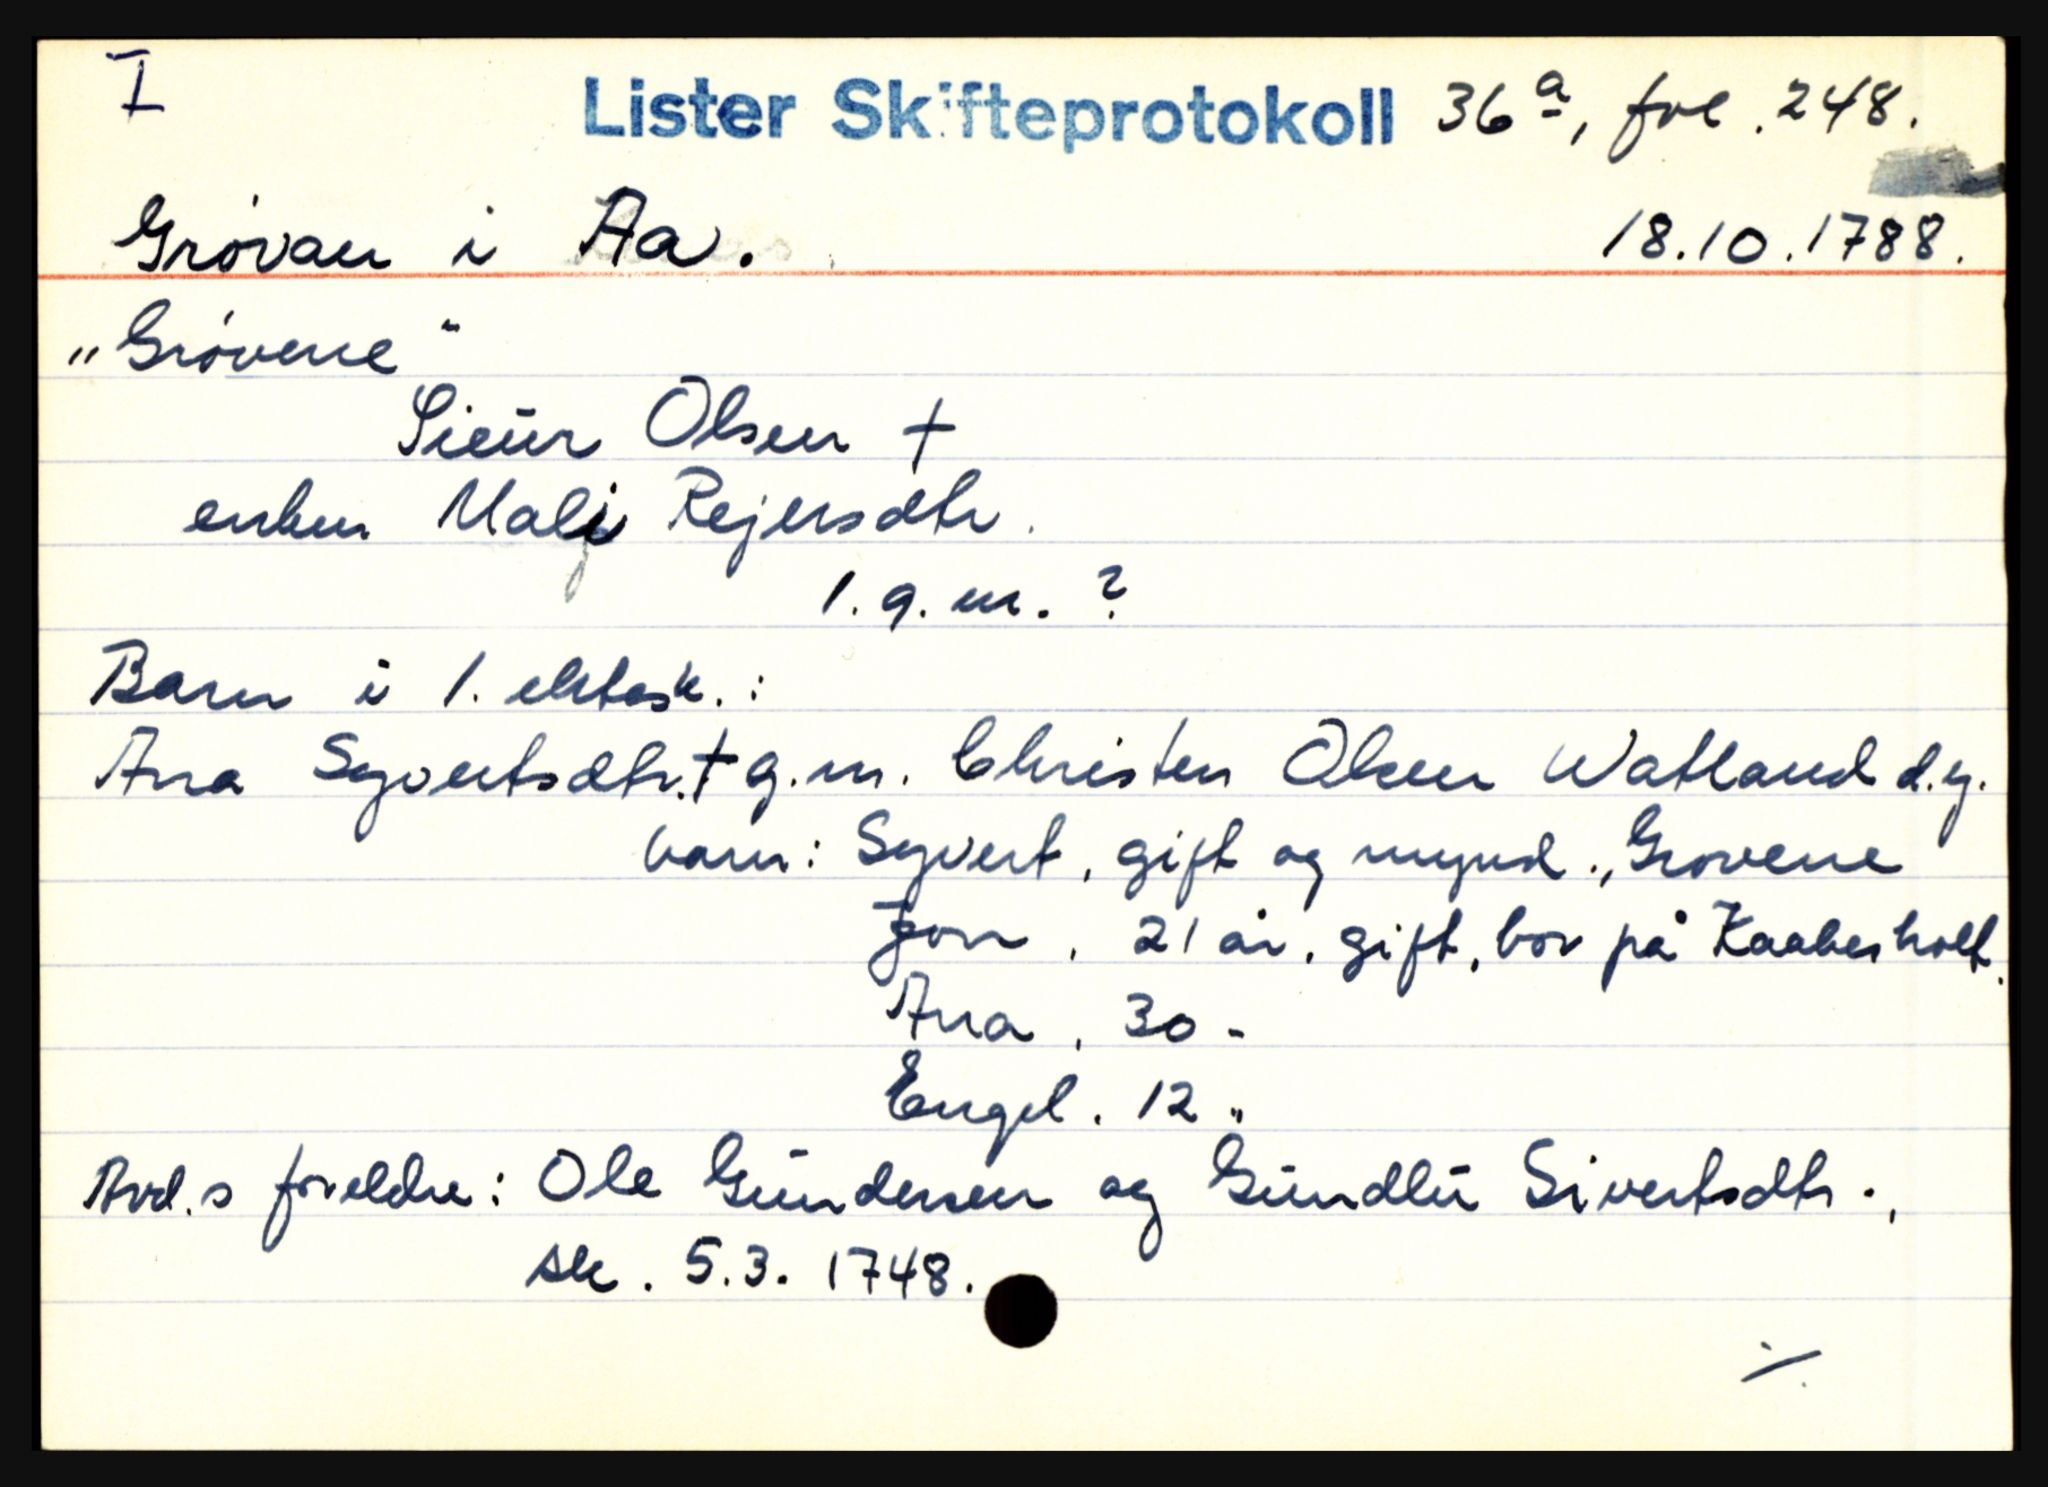 I
Lister Skifteprotokoll 36a, fol. 248.
Grøvan i Aa. 18.10.1788.
„Grøvene"
Sieur Olsen †
enken Mali Rejersdtr.
1. g.m. ?
Barn i 1. ektesk. :
Ana Syvertsdtr. † g.m. Christen Olsen Watland d.y.
barn: Syvert, gift og mynd., Grovene
Jon, 21 år, gift, bor på Kaabesholt.
Ana, 30 -
Engel. 12 „
Avd.s foreldre: Ole Gündersen og Gündlü Sivertsdtr.,
sk. 5.3. 1748.
./.